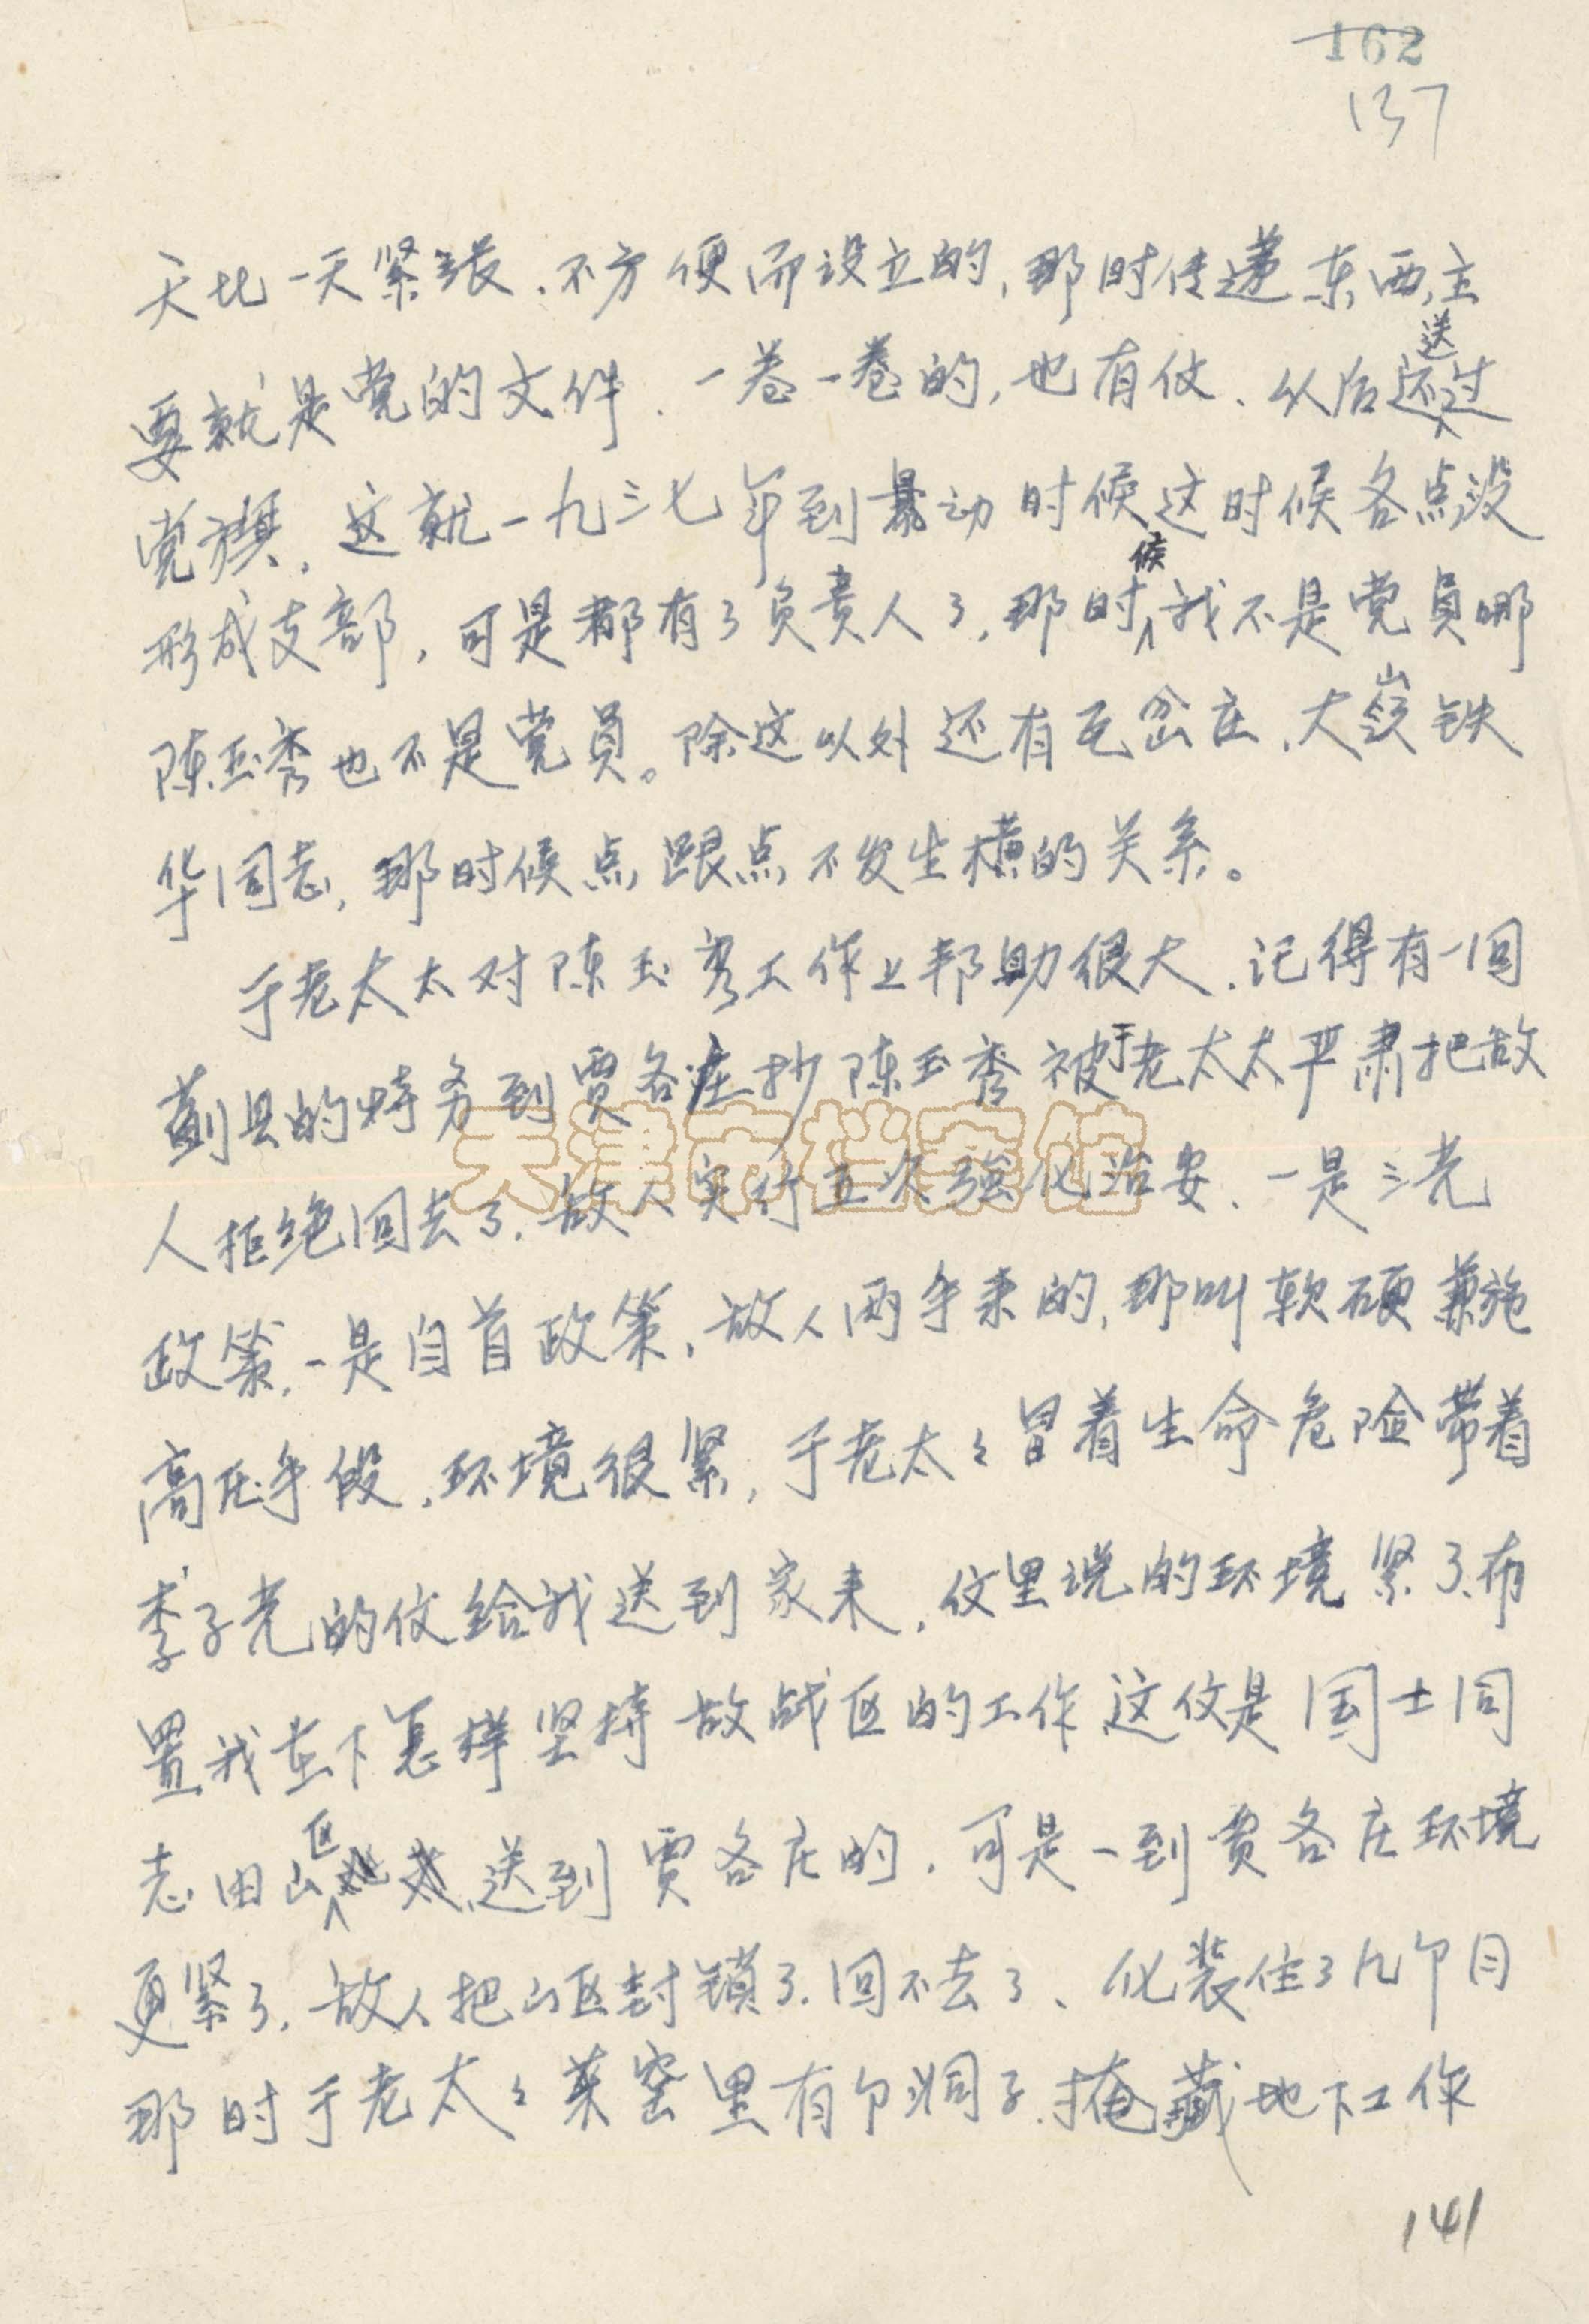 162
137
天比一天紧张、不方便而设立的，那时传递东西，主
要就是党的文件、一卷一卷的，也有伩、从后还送过
党旗，这就一九三七年到暴动时候，这时候各点没
形成支部，可是都有了负责人了，那时候我不是党员哪
陈玉秀也不是党员。除这以外还有瓦岔庄、大岭铁
华同志，那时候点跟点不发生横的关系。
于老太太对陈玉秀工作上邦助很大、记得有一回
蓟县的特务到贾各庄抄陈玉秀被于老太太严肃把敌
人拒绝回去了，敌人实行五次強化治安、一是三光
政策，一是自首政策，敌人两手来的，那叫软硬兼施
高压手段，环境很紧，于老太々冒着生命危险带着
李子光的伩给我送到家来，伩里说的环境紧了，布
置我在下怎样坚持敌战区的工作这伩是国士同
志由山区送到贾各庄的，可是一到贾各庄环境
更紧了，敌人把山区封锁了，回不去了、化装住了几个月
那时于老太々菜窖里有个洞子，掩藏地下工作
141
天津市档案馆